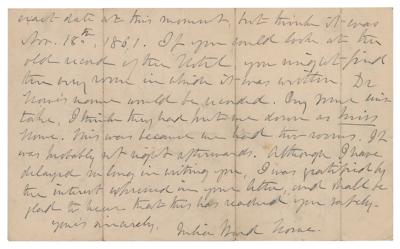 exact date at this moment, but think it was
Nov. 18th, 1861. If you could look at the
old record of the Hotel you might find
the very room in which it was written Dr
Howe's name would be recorded. By some mis
take, I think they had put me down as Miss
Howe. This was because we had two rooms. It
was probably set right afterwards. Although I have
delayed so long in writing you, I was gratified by
the interest expressed in your letter, and shall be
glad to hear that this has reached you safely.
yours sincerely,
Julia Ward Howe.